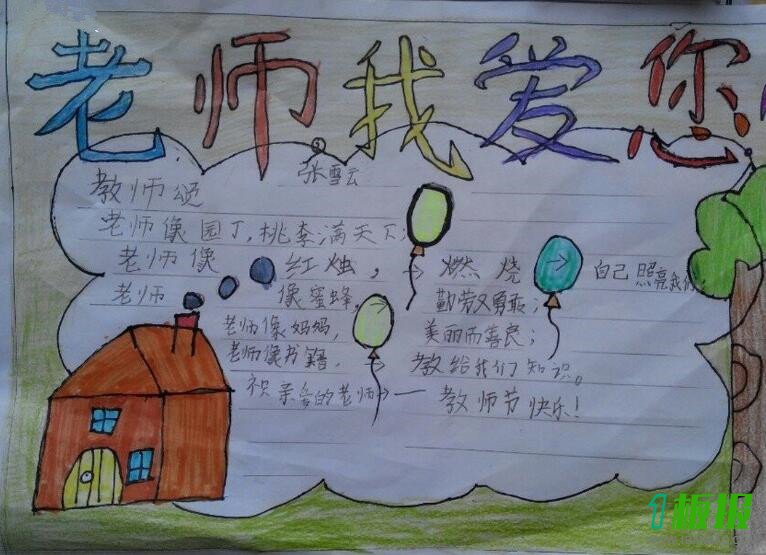 老师我爱您
张雪云
教师颂
老师像园丁,桃李满天下;
老师像红烛,→燃烧自己照亮我们;
老师像蜜蜂,勤劳又勇敢;
老师像妈妈,美丽而善良;
老师像书籍,教给我们知识。
祝亲爱的老师——教师节快乐!
1板报